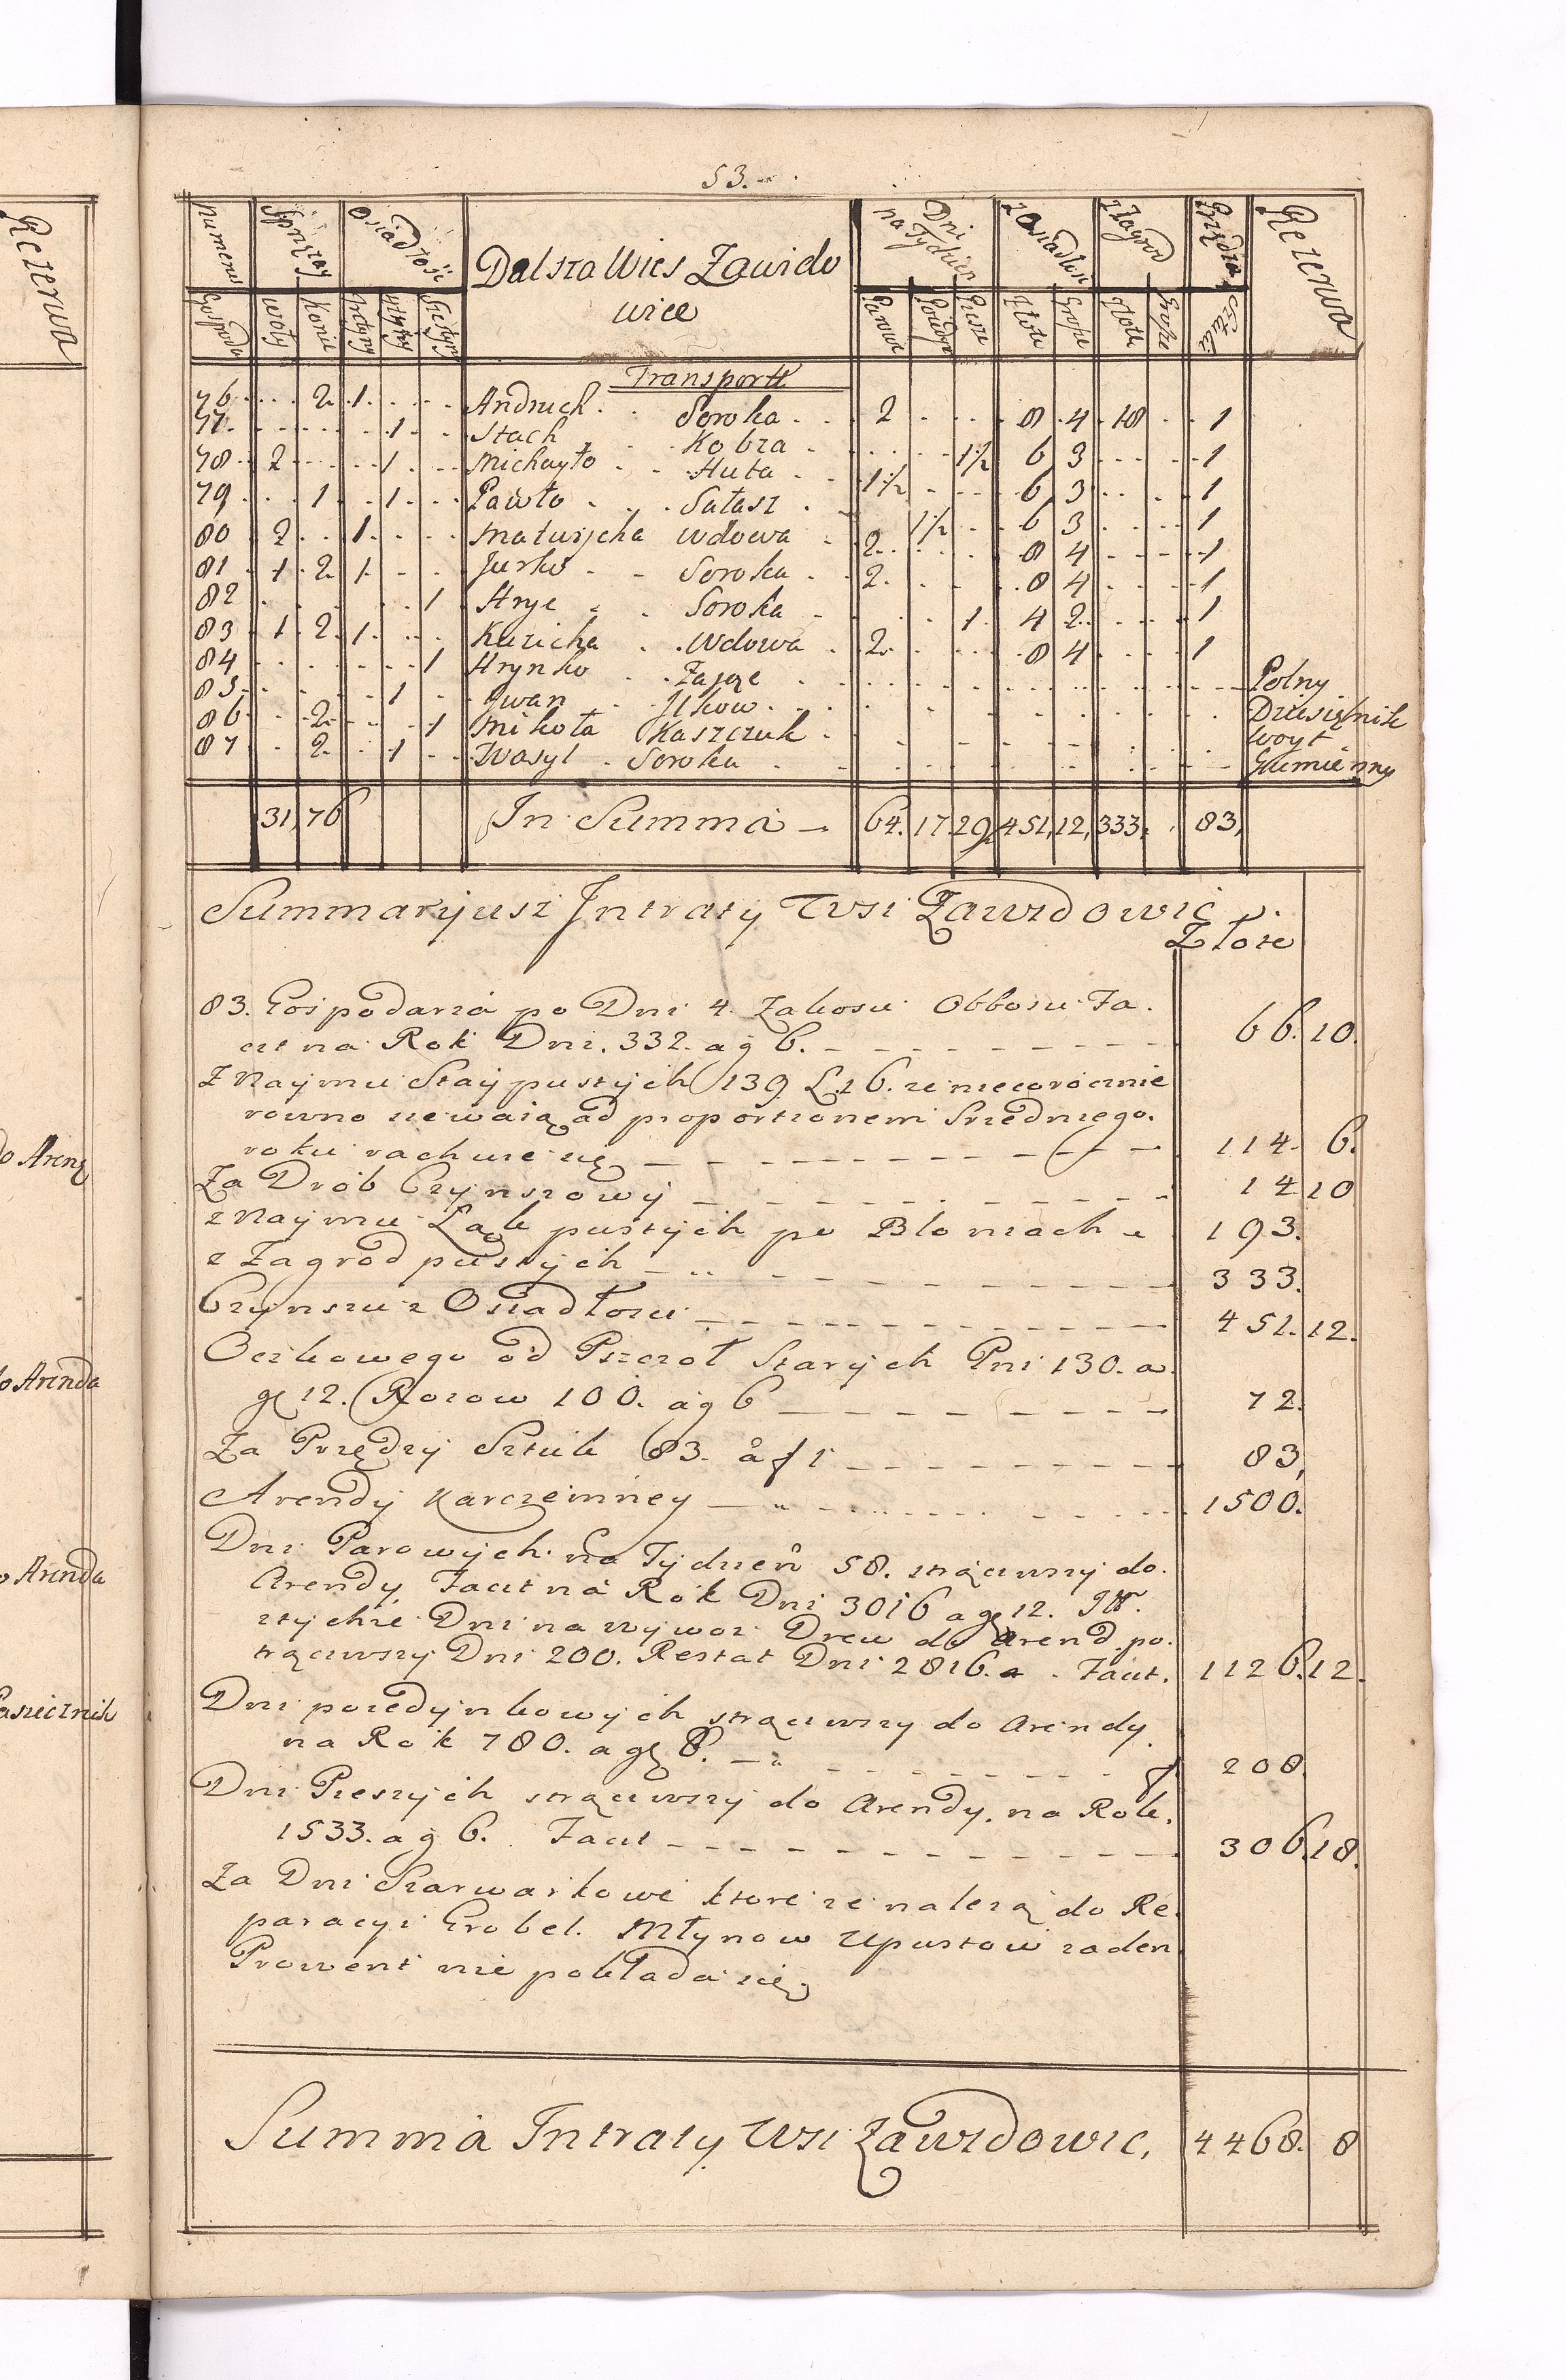 53.
Rezerwa
numerus Sprzęzay Osiadłość Dalsza Wies Zawido Dni na Tydzien z Osiadłosci z Zagrod Przędza Rezerwa
Gospoda woły Konie wice Parowe Poiedyn Piesze Złote Grosze Złote Grosze Sztuki
Transport
76 2 1 Andruch Soroka 2 8 4 18 1
77 1 Stach Kobza 1½ 6 3 1
78 2 1 Michayło Huta 1½ 6 3 1
79 1 1 Pawło Sałasz 1½ 6 3 1
80 2 1 Matwijcha wdowa 2 8 4 1
81 1 2 1 Jurko Soroka 2 8 4 1
82 1 Hryc Soroka 1 4 2 1
83 1 2 1 Kuzicha Wdowa 2 8 4 1
84 1 Hrynko ZaJąc Polny
85 1 Jwan Jłkow Dziesiętnik
86 2 1 Mikoła Kaszczuk Woyt
87 2 1 Wasyl Soroka Gumienny
31, 76 In Summa 64. 17. 29 451, 12, 333, 83,
Summaryusz Jntraty Wsi Zawidowic
Złote
83. Gospodarzá po Dni 4. Zakosu Obkosu Fa.
cit na Rok Dni. 332. a g 6. 66. 10.
Z Naymu Stay pustych 139 ze niecorocznie
rowno siewaią ad proportionem Sredniego.
roku rachuie się 114. 6.
Za Drób Czynszowy 14 10
z Naymu Łąk pustych po Błoniach 193.
z Zagrod pustych 333.
Czynszu z Osiadłosci 451. 12.
Oczkowego od Pszczoł Starych Pni 130. a
gl 12. Rojow 100. á g 6 72.
Za Przędzy Sztuk 83. á f 1 83,
Arendy Karczemney 1500.
Dni Parowych na Tydzień 58. strąciwszy do.
Arendy, Facit na Rok Dni 3016 a gl 12.
ztychże Dni na wywoz Drew do Arend po.
trąciwszy Dni 200. Restat Dni 2816. a Facit. 1126. 12.
Dni poiedynkowych strąciwszy do Arendy
na Rok 780. a gl 8. 208.
Dni Pieszych strąciwszy do Arendy. na Rok.
1533. a g 6. Facit 306. 18.
Za Dni Szarwarkowe ktore że należą do Re.
paracyi Grobel. Młynow Upustow zaden
Prowent nie pokłada się
Summa Intraty Wsi Zawidowic, 4468. 8
do Arend
do Arenda
do Arenda
Pasiecznik